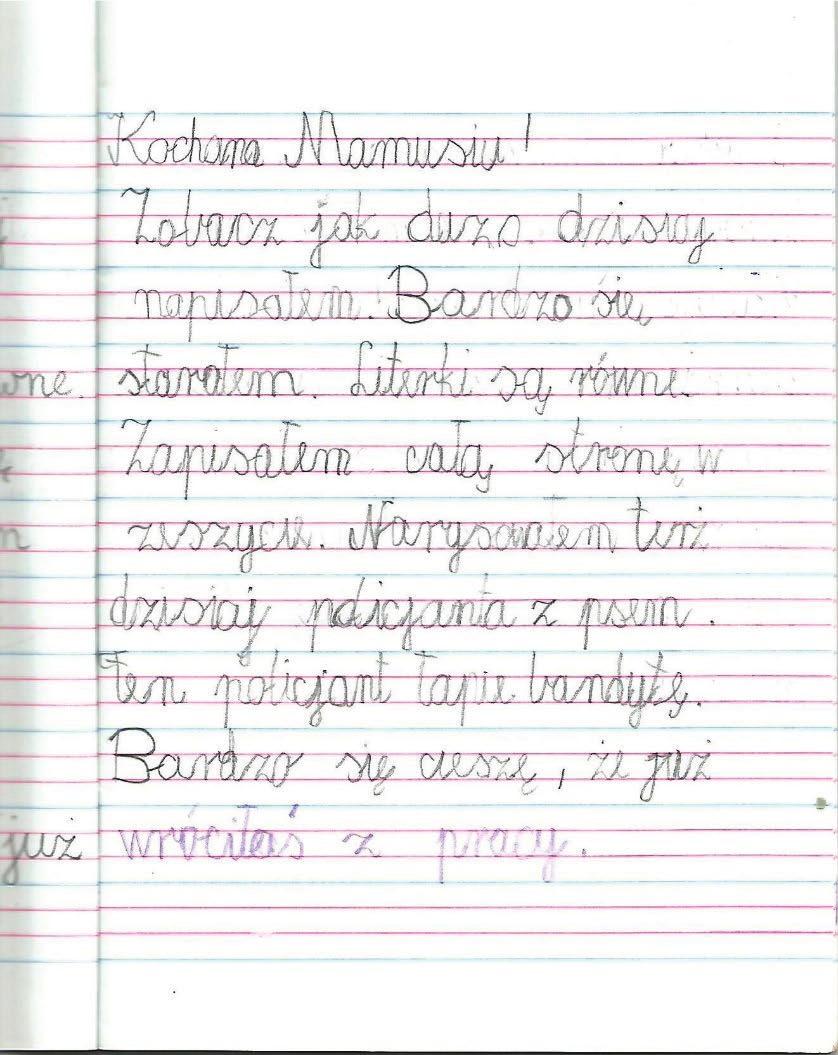 Kochana Mamusiu!
Zobacz jak dużo dzisiaj
napisałem. Bardzo się
wne. starałem. Literki są równe.
Zapisałem całą stronę w
zeszycie. Narysowałem też
dzisiaj policjanta z psem.
Ten policjant łapie bandytę.
Bardzo się cieszę, że już
już wróciłaś z pracy.